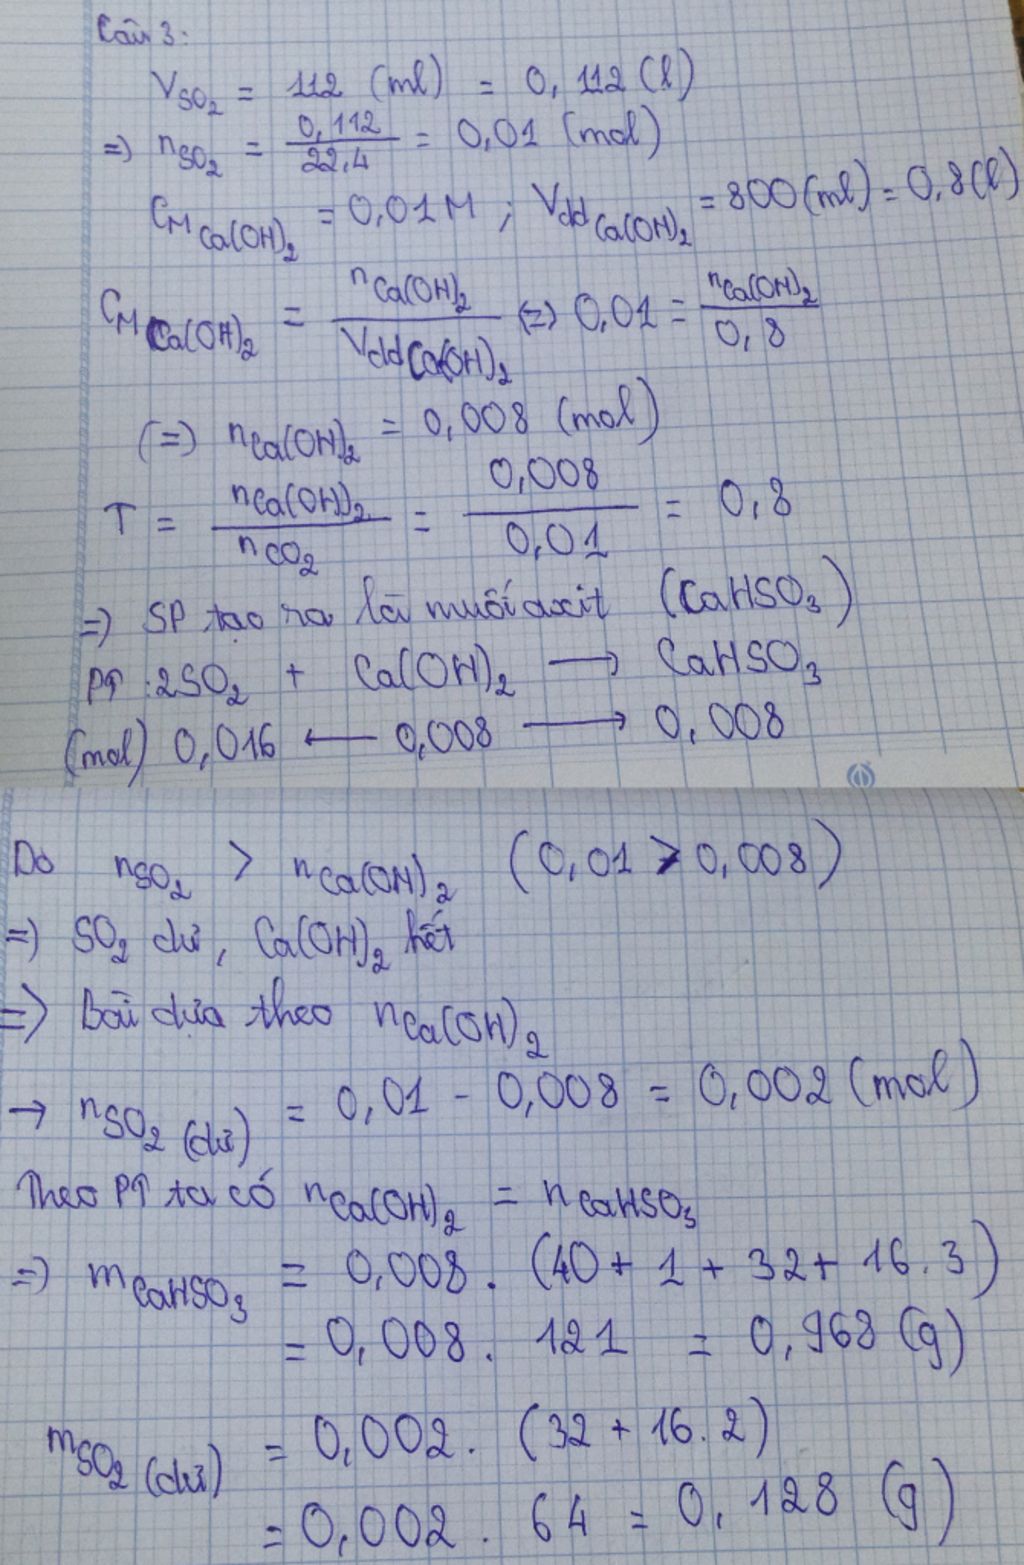 Câu 3:
V_SO₂ = 112 (ml) = 0,112 (l)
=) n_SO₂ = 0,112/22,4 = 0,01 (mol)
C_M Ca(OH)₂ = 0,01M ; Vdd Ca(OH)₂ = 800 (ml) = 0,8 (l)
C_M Ca(OH)₂ = n_Ca(OH)₂/Vdd Ca(OH)₂ (=) 0,01 = n_Ca(OH)₂/0,8
(=) n_Ca(OH)₂ = 0,008 (mol)
T = n_Ca(OH)₂/n_CO₂ = 0,008/0,01 = 0,8
=) SP tạo ra là muối axit (CaHSO₃)
PT : 2SO₂ + Ca(OH)₂ → CaHSO₃
(mol) 0,016 ← 0,008 → 0,008
Do n_SO₂ > n_Ca(OH)₂ (0,01 > 0,008)
=) SO₂ dư, Ca(OH)₂ hết
=) Bài dựa theo n_Ca(OH)₂
→ n_SO₂ (dư) = 0,01 - 0,008 = 0,002 (mol)
Theo PT ta có n_Ca(OH)₂ = n_CaHSO₃
=) m_CaHSO₃ = 0,008 . (40 + 1 + 32 + 16 . 3)
= 0,008 . 121 = 0,968 (g)
m_SO₂ (dư) = 0,002 . (32 + 16 . 2)
= 0,002 . 64 = 0,128 (g)